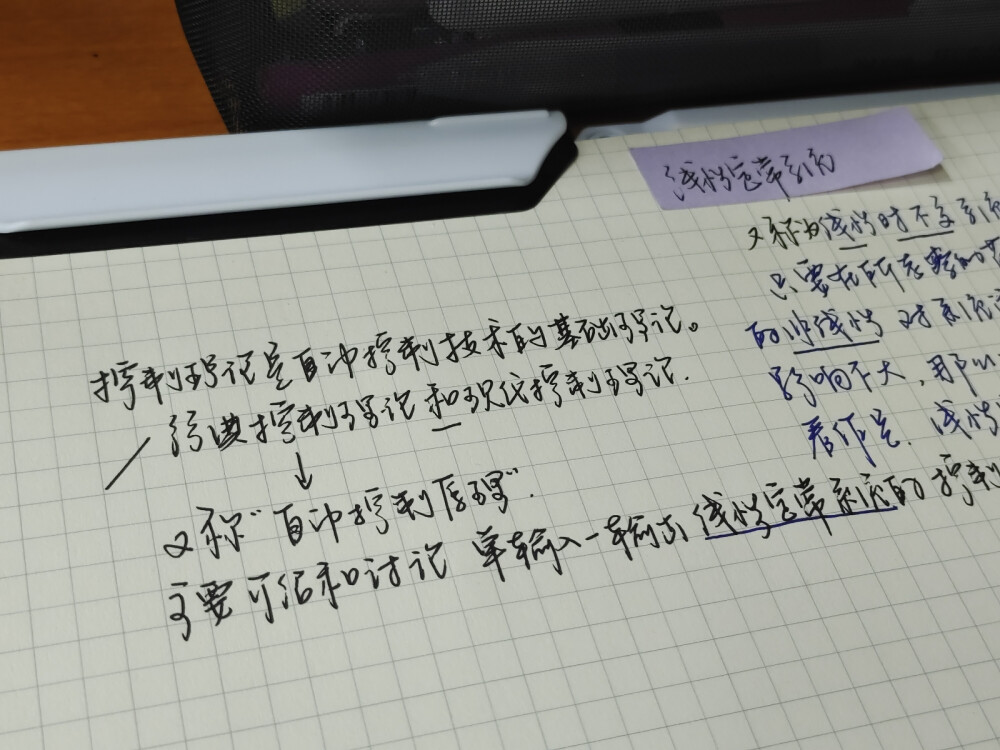 线性定常系统
又称为线性时不变系统
只要在所考察的范
的非线性对系统
影响不大，那么
看作是.线性
控制理论是自动控制技术的基础理论。
经典控制理论和现代控制理论.
↓
又称“自动控制原理”.
主要研究和讨论 单输入-输出线性定常系统的控制